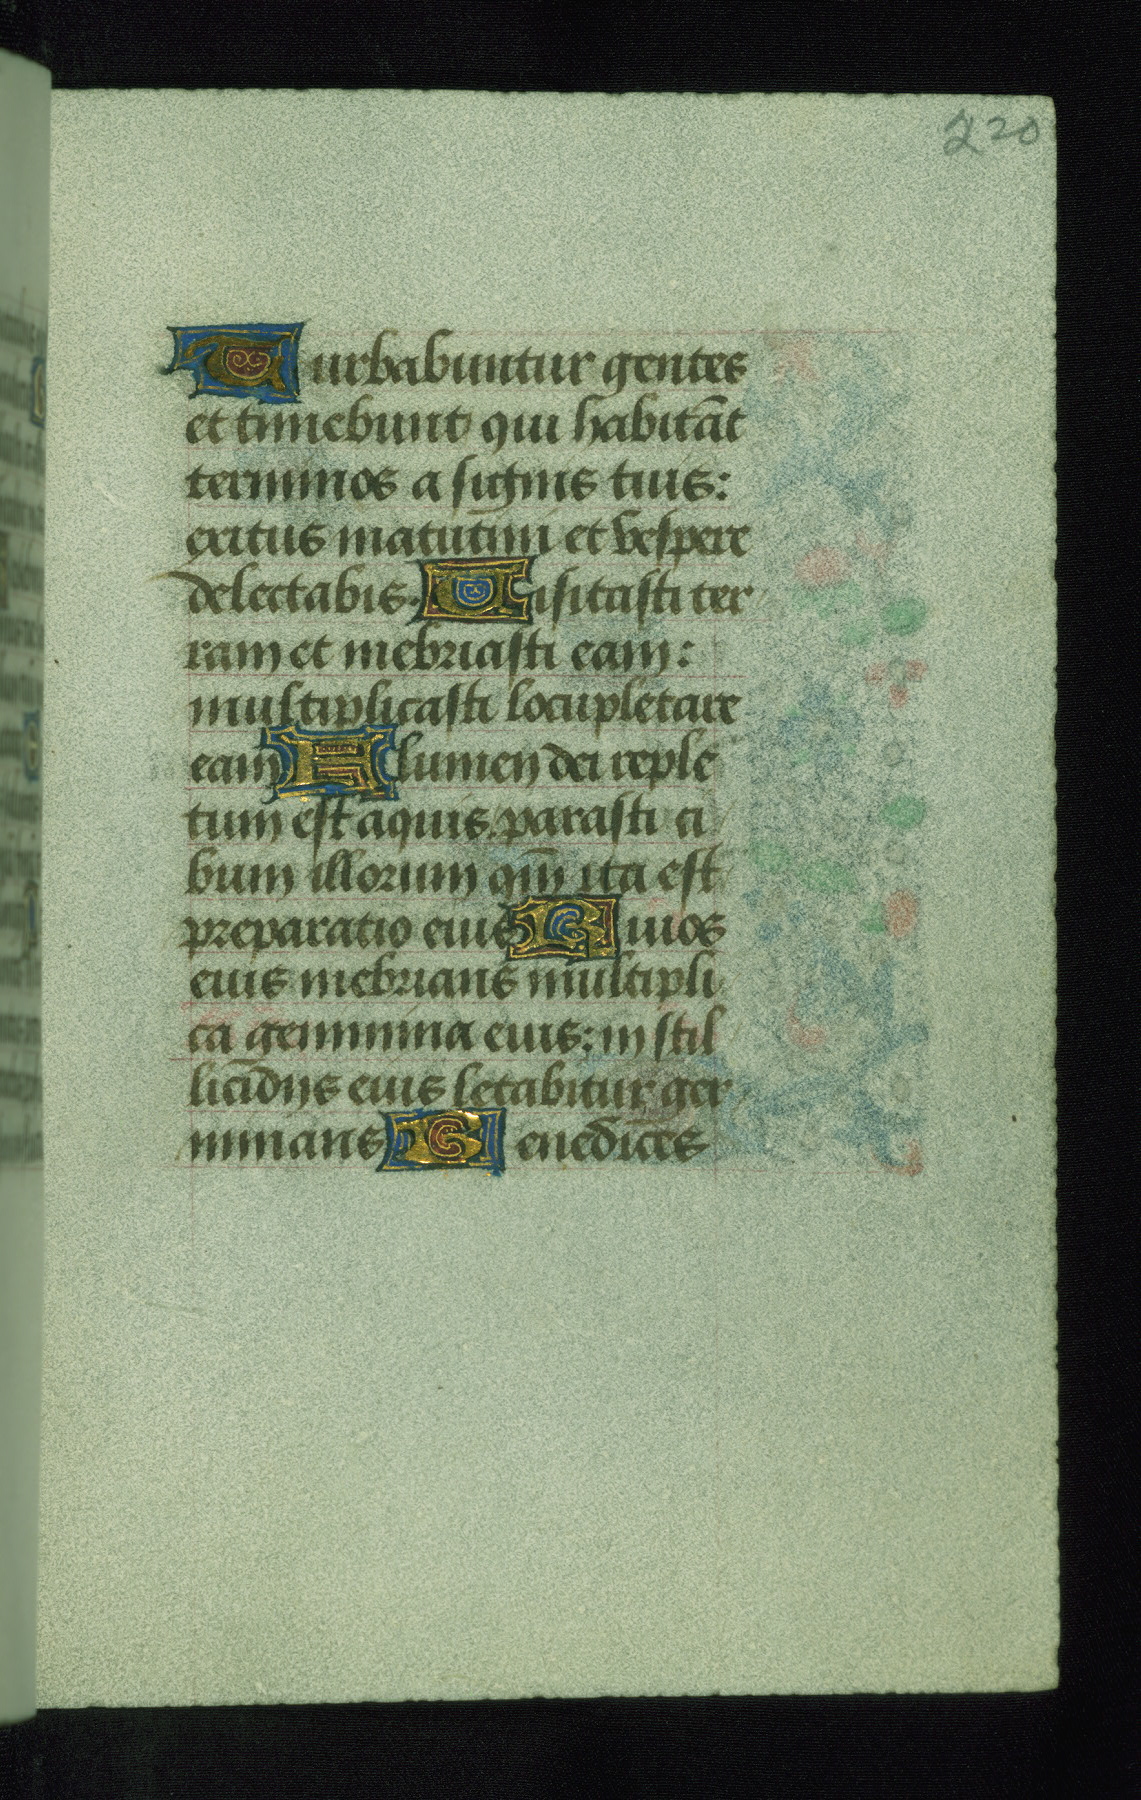 220
Turbabuntur gentes
et timebunt qui habitāt
terminos a signis tuis:
exitus matutini et vespere
delectabis. Visitasti ter
ram et inebriasti eam:
multiplicasti locupletare
eam Flumen dei reple
tum est aquis. parasti ci
bum illorum qm̄ ita est
preparatio eius Riuos
eius inebrians multipli
ca genimina eius: in stil
licidijs eius letabitur ger
minans Benedices